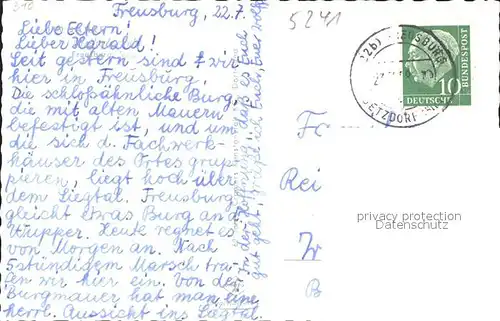 Freusburg, 22.7.
Liebe Eltern!
Lieber Harald!
Seit gestern sind wir
hier in Freusburg.
Die schloßähnliche Burg,
die mit alten Mauern
befestigt ist, und um
die sich d. Fachwerk-
häuser des Ortes grup-
pieren, liegt hoch über
dem Siegtal. Freusburg
gleicht etwas Burg an d.
Wupper. Heute regnet es
von Morgen an. Nach
5stündigem Marsch tra-
fen wir hier ein. Von der
Burgmauer hat man eine
herrl. Aussicht ins Siegtal.
In der Hoffnung, daß es Euch
gut geht, grüße ich Euch, Euer
5241
(22b) FREUSBURG
BETZDORF
10
DEUTSCHE
BUNDESPOST
Rei
privacy protection
Datenschutz